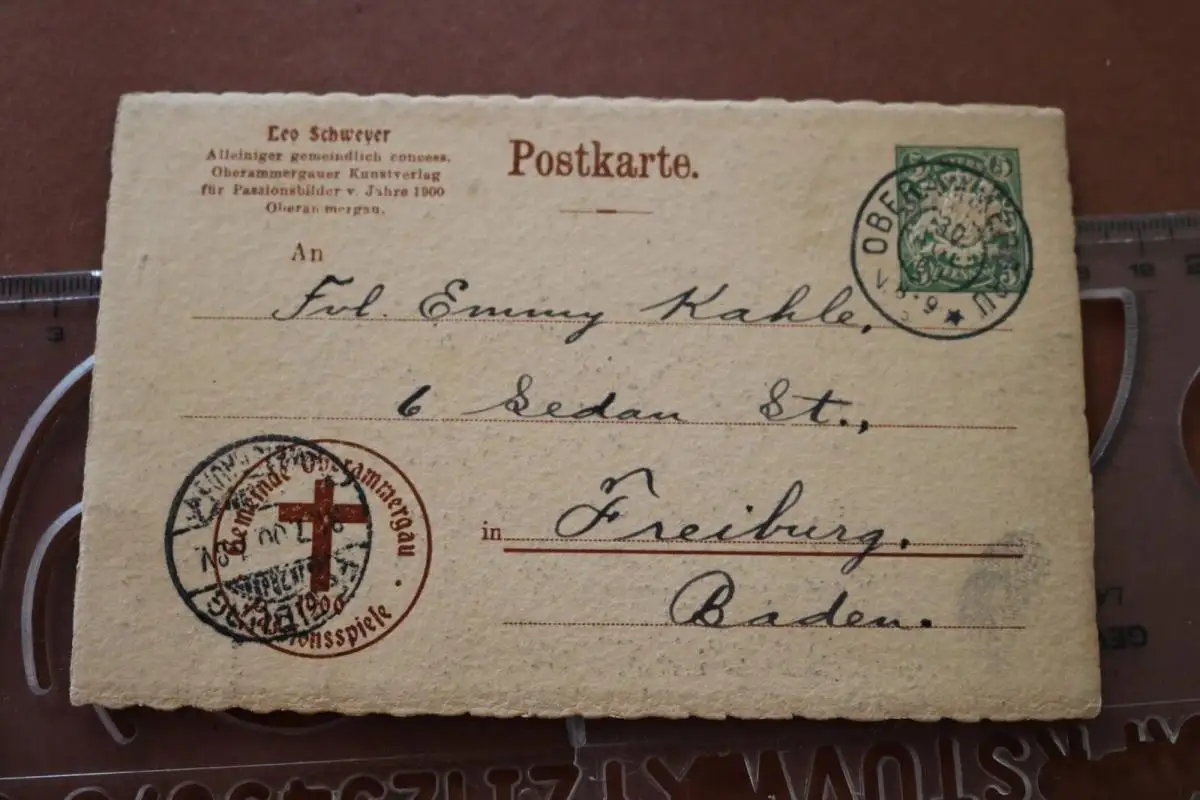 Leo Schweyer
Alleiniger gemeindlich concess.
Oberammergauer Kunstverlag
für Passionsbilder v. Jahre 1900
Oberammergau.
Postkarte.
5 5
5 5
OBERAMMERGAU
An
Frl. Emmy Kahle,
6 Sedan St.,
in Freiburg.
Baden.
Gemeinde Oberammergau
1900
Passionsspiele